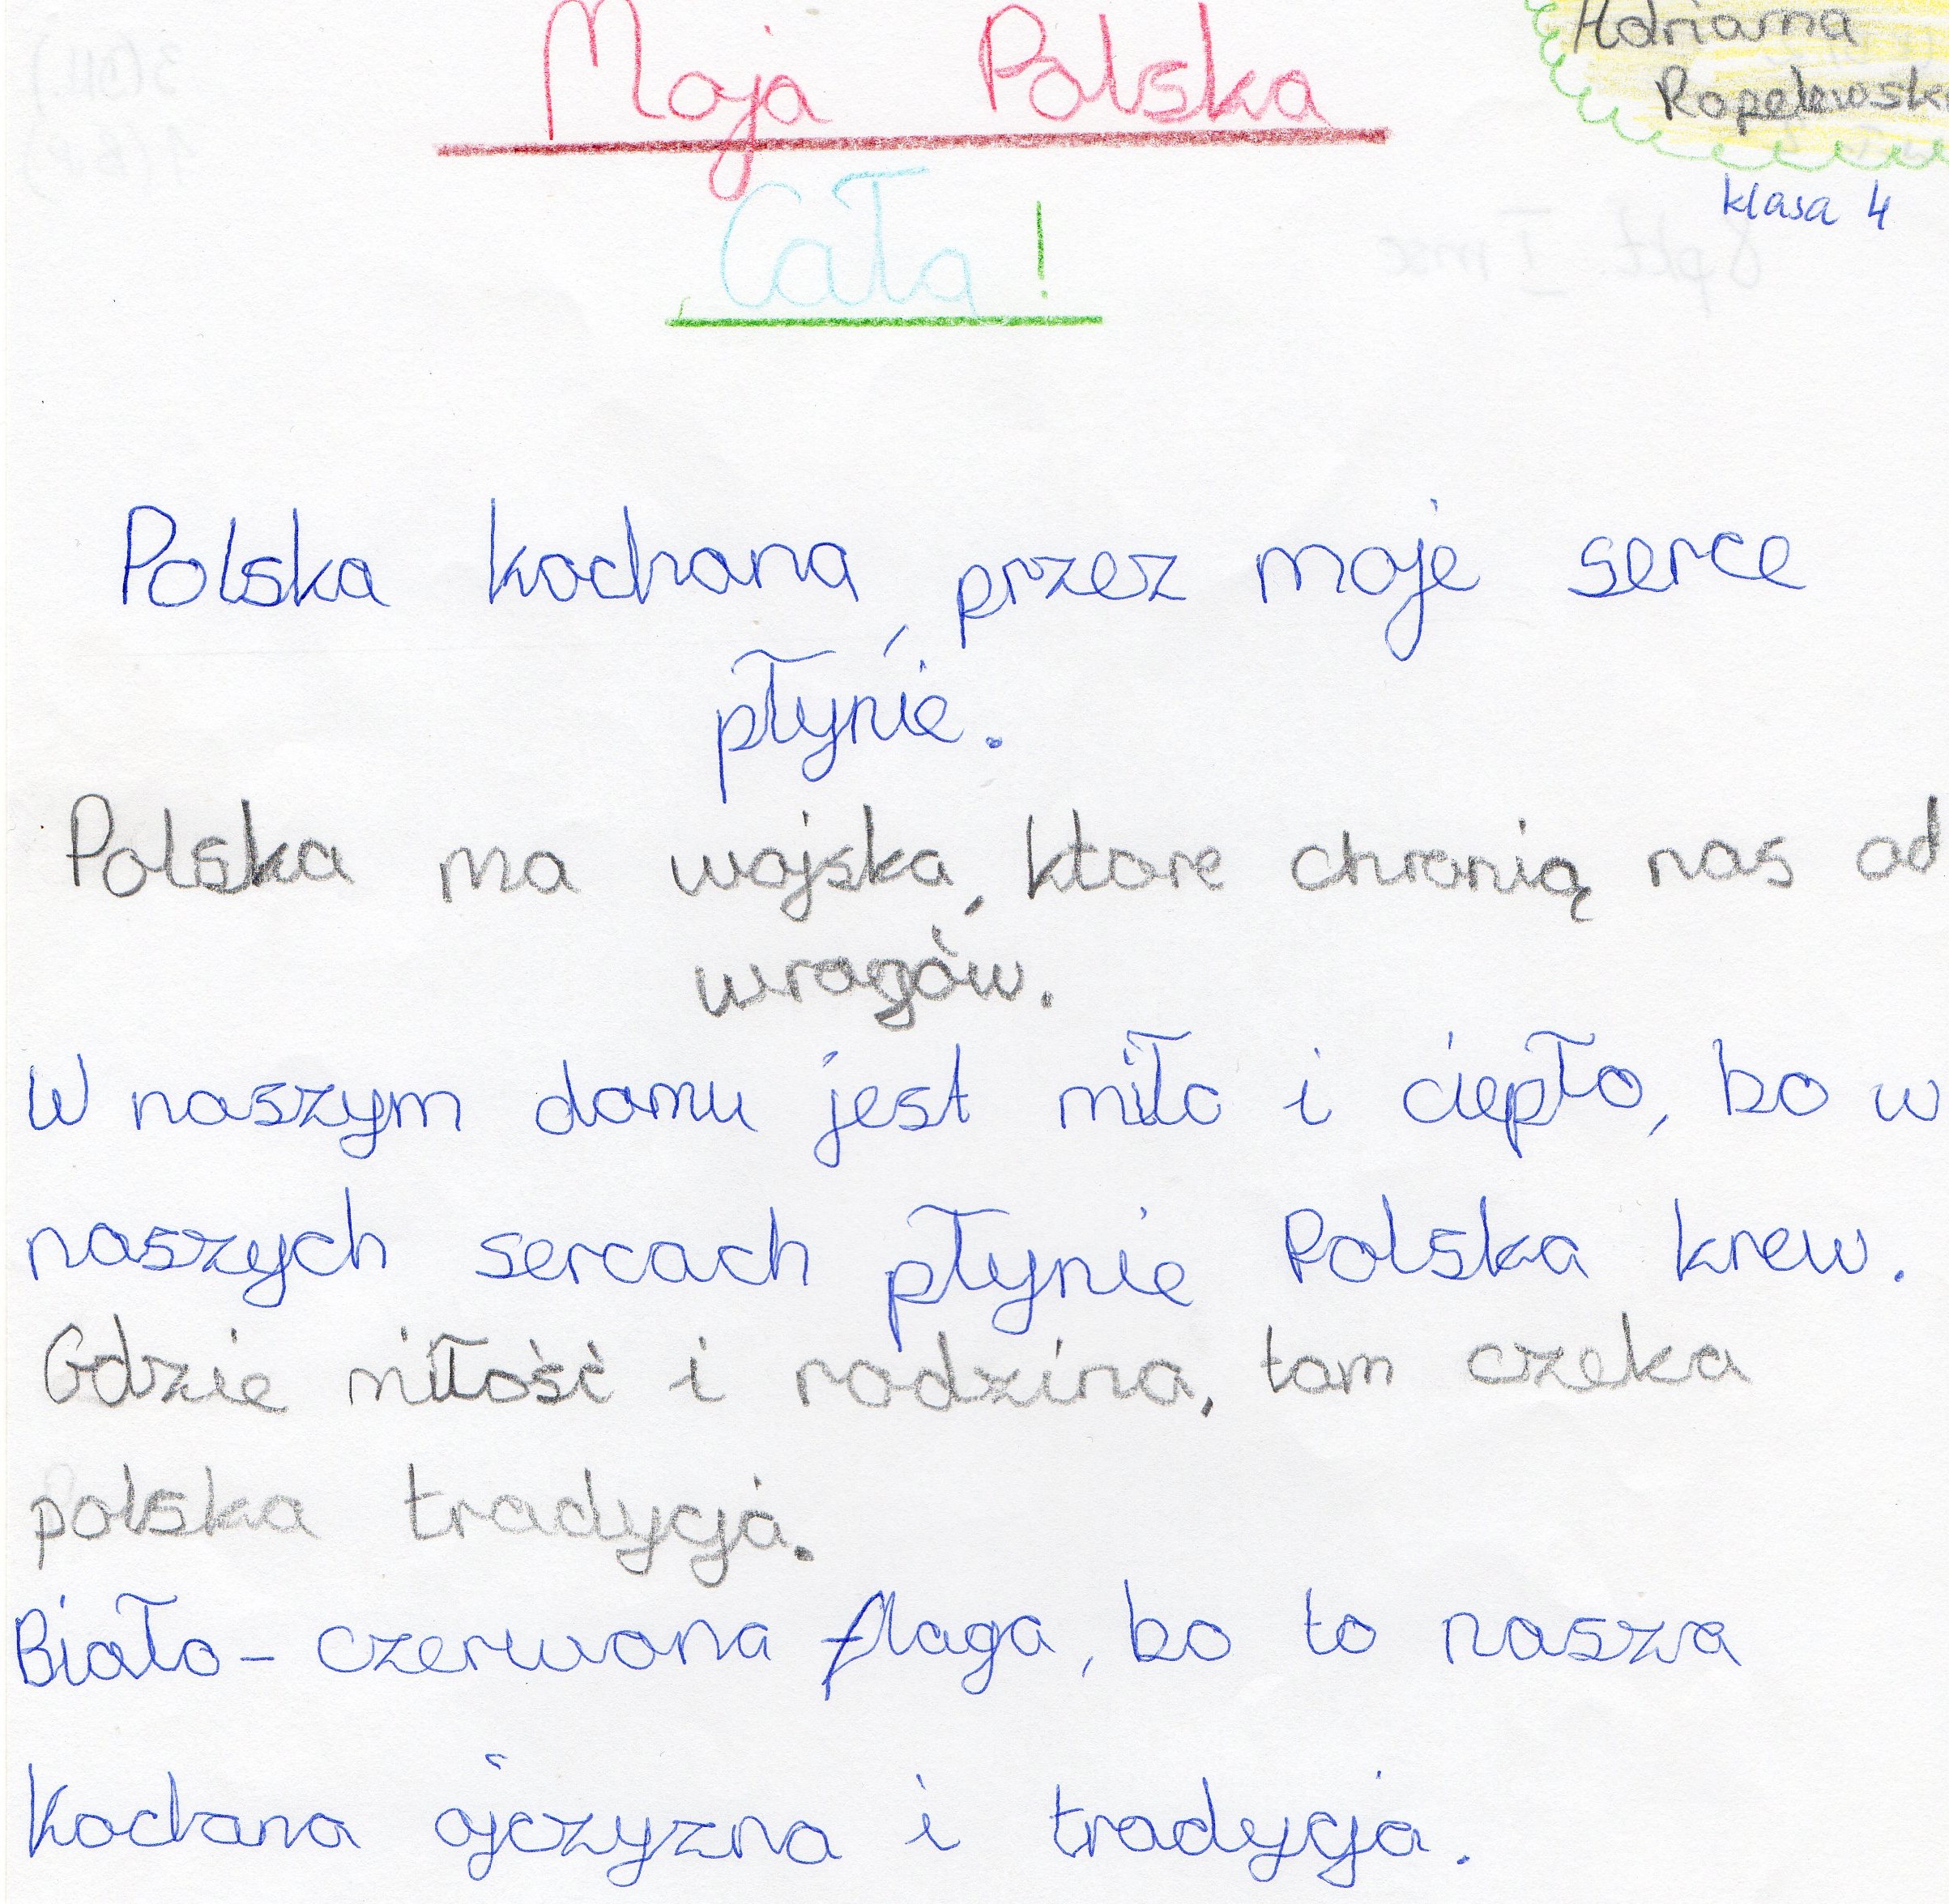 Moja Polska
Cała!
Adrianna
Ropelewska
klasa 4
Polska kochana, przez moje serce
płynie.
Polska ma wojska, ktore chronią nas od
wrogów.
W naszym domu jest miło i ciepło, bo w
naszych sercach płynie Polska krew.
Gdzie miłość i rodzina, tam czeka
polska tradycja.
Biało-czerwona flaga, bo to nasza
Kochana ojczyzna i tradycja.